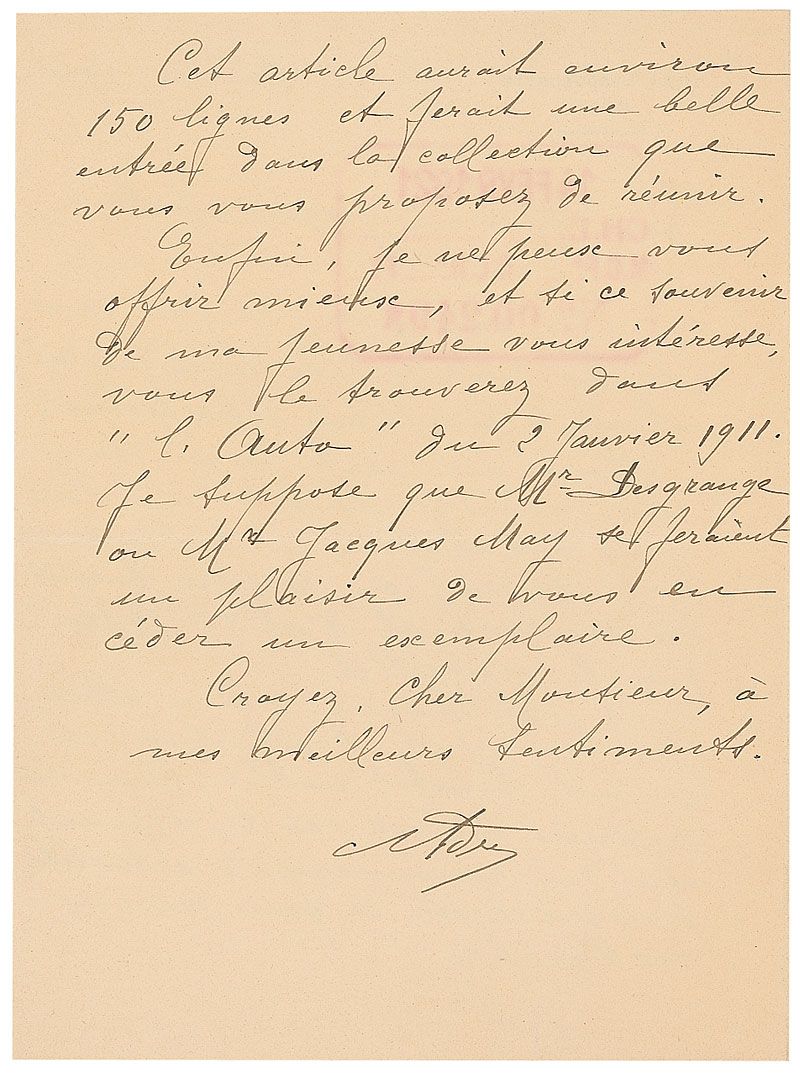 Cet article aurait environ
150 lignes et ferait une belle
entrée dans la collection que
vous vous proposez de réunir.
Enfin, je ne peux vous
offrir mieux, et si ce souvenir
de ma jeunesse vous intéresse,
vous le trouverez dans
" l'Auto " du 2 Janvier 1911.
Je suppose que Mr Desgrange
ou Mr Jacques May se feraient
un plaisir de vous en
céder un exemplaire.
Croyez, Cher Monsieur, à
mes meilleurs sentiments.